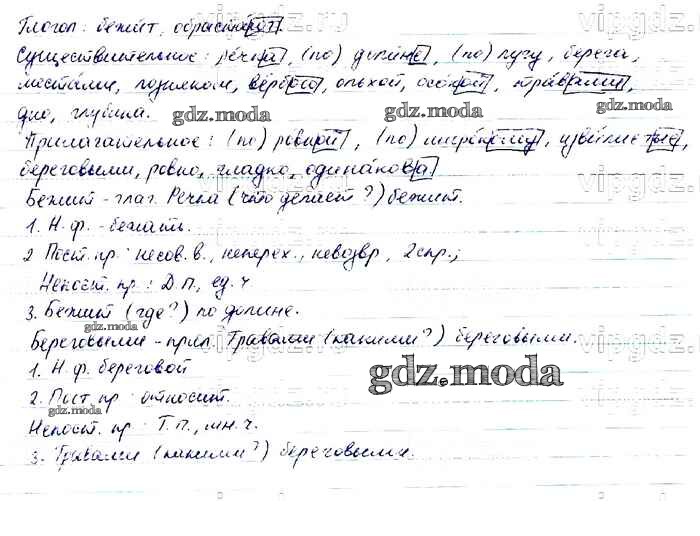 Глагол: бежит, обрастают.
Существительные: речка, (по) долине, (по) лугу, берега,
местами, лозняком, вербою, ольхой, осокой, травами,
дно, глубина.
Прилагательное: (по) ровной, (по) широкому, извилистые,
береговыми, ровно, гладко, одинакова
Бежит - глаг. Речка (что делает?) бежит.
1. Н.ф. - бежать.
2 Пост. пр: несов. в., неперех., невозвр, 2 спр.;
Непост. пр: Д.П., ед. ч
3. Бежит (где?) по долине.
Береговыми - прил. Травами (какими?) береговыми.
1. Н.ф. береговой
2. Пост. пр: относит.
Непост. пр: Т.П., мн. ч.
3. Травами (какими?) береговыми.
gdz.moda
gdz.moda
gdz.moda
gdz.moda
gdz.moda
vipgdz.ru
vipgdz.ru
vipgdz.ru
vipgdz.ru